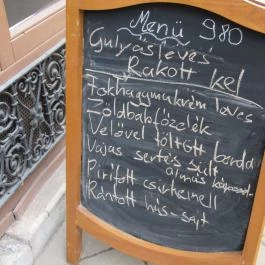 Menü 980
Gulyásleves
Rakott kel
Fokhagymakrém leves
Zöldbabfőzelék
Velővel töltött borda
Vajas sertés sült
almás
Pirított csirkemell
Rántott hús-sajt